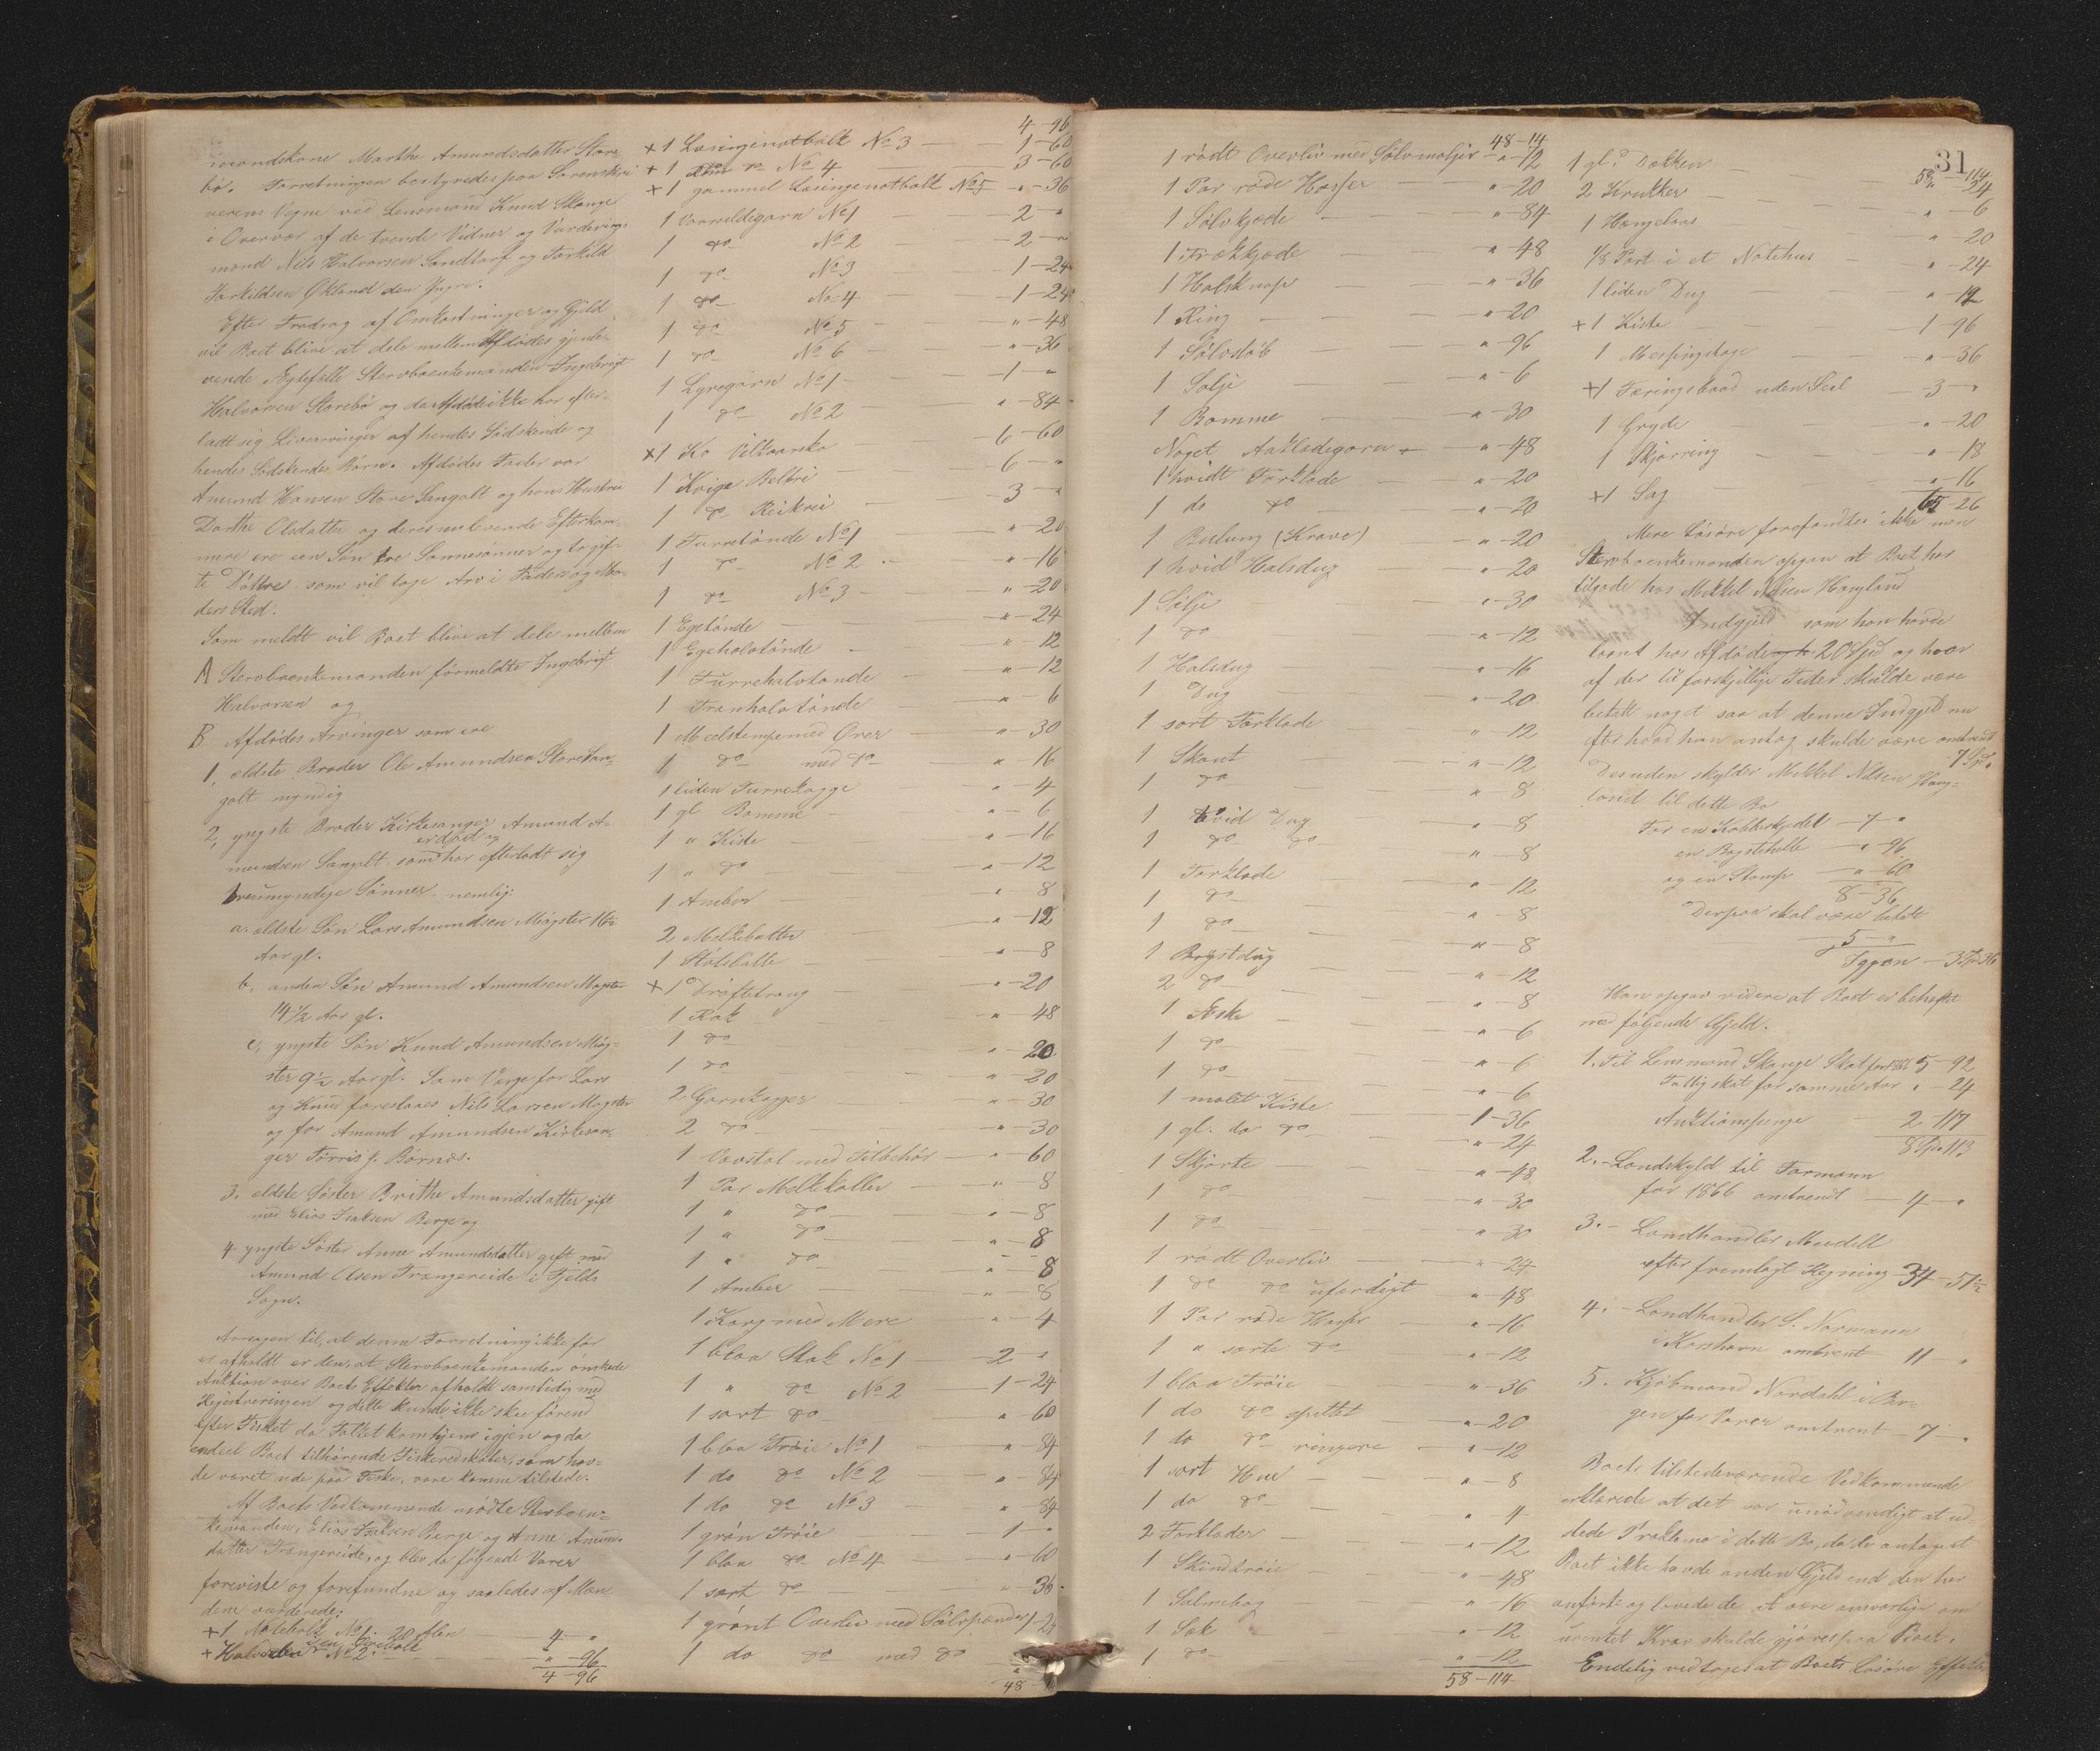 mandskone Marthe Amundsdatter Store
bø. Forretningen bestyredes paa Sorenskri
verens Vegne ved Lensmand Knud Skauge
i Overvær af de tvende Vidner og Vurderings
mænd Nils Halvorsen Sandtorf og Torkild
Torkildsen Økland den Yngre.
Efter Fradrag af Omkostninger og Gjeld
vil Boet blive at dele mellem Afdødes gjenle-
vende Ægtefælle Stervboenkemanden Ingebrigt
Halvorsen Storebø og da Afdøde ikke har efter-
ladt sig Livsarvinger af hendes Sødskende og
hendes Sødskendes Børn. Afdødes Fader var
Amund Hansen Store Sangolt og hans Hustru
Dorthe Olsdatter og deres nulevende Efterkom-
mere ere een Søn tre Sønnesønner og to gif-
te Døttre som vil tage Arv i Faders og Mo-
ders Sted.
Som meldt vil Boet blive at dele mellem
A Stervboenkemanden formeldte Ingebrigt
Halvorsen og
B Afdødes Arvinger som ere
1, ældste Broder Ole Amundsen Store San-
golt myndig
2, yngste Broder Kirkesanger Amund A-
er død og
mundsen Sangolt som har efterladt sig
tre umyndige Sønner nemlig:
a. ældste Søn Lars Amundsen Møgster 16 1/2
Aar gl.
b, anden Søn Amund Amundsen Møgster
14 1/2 Aar gl.
c, yngste Søn Knud Amundsen Møg-
ster 9 1/2 Aar gl. Som Verge for Lars
og Knud foreslaaes Nils Larsen Møgster
og for Amund Amundsen Kirkesan-
ger Tørris J. Børnæs.
3. ældste Søster Brithe Amundsdatter gift
med Elias Isaksen Berge og
4 yngste Søster Anne Amundsdatter gift med
Amund Olsen Trængereide i Fjelds
Sogn.
Aarsagen til, at denne Forretning ikke før
er afholdt er den, at Stervboenkemanden ønskede
Auktion over Boets Effekter afholdt samtidig med
Registreringen og dette kunde ikke skee førend
efter Fisket da Folket kom hjem igjen og da
endeel Boet tilhørende Fiskeredskaber, som hav-
de været ude paa Fiske, vare komne tilstede.
Af Boets Vedkommende mødte Stervboen-
kemanden, Elias Isaksen Berge og Anne Amun-
datter Trængereide, og blev da følgende Varer
foreviste og forefundne og saaledes af Mæn
dene vurderede:
+1 Notebolk No 1. 20 Alen 4 "
+ Halvdelen No 2 " - 96
4 - 96
4 - 96
+ 1 Løsingenotbolk No 3 1 - 60
+ 1 do No 4 3 - 60
+ 1 gammel Løsingenotbolk No 5 " - 36
1 Vaarsildegarn No 1 2 - "
1 do No 2 2 - "
1 do No 3 1 - 24
1 do No 4 1 - 24
1 do No 5 " - 48
1 do No 6 " - 36
1 Lyregarn No 1 1 - "
1 do No 2 " - 84
+1 Ko Vilkaarsko 6 - 60
1 Kvige Beltrei 6 - "
1 do Reikrei 3 - "
1 Furretønde No 1 " - 20
1 do No 2 " - 16
1 do No 3 " - 20
1 Egetønde " - 24
1 Egehalvtønde " - 12
1 Furrehalvtønde " - 12
1 Tranhalvtønde " - 6
1 Meelstampe med Ører " - 30
1 do med do " - 16
1 liden Furrekagge " - 4
1 gl Bomme " - 6
1 " Kiste " - 16
1 " do " - 12
1 Amber " - 8
2 Melkebøtter " - 12
1 Stølsbøtte " - 8
+ 1 Drøftetraug " - 20
1 Rok " - 48
1 do " - 20
1 do " - 20
2 Garnkagger " - 30
2 do " - 30
1 Vævstol med Tilbehør " - 60
1 Par Melkekoller " - 8
1 " do " - 8
1 " do " - 8
1 " do " - 8
1 Amber " - 8
1 Korg med Mere " - 4
1 blaa Stak No 1 2 - "
1 " do No 2 1 - 24
1 sort do " - 60
1 blaa Trøie No 1 " - 84
1 do do No 2 " - 84
1 do do No 3 " - 84
1 grøn Trøie 1 - "
1 blaa do No 4 " - 60
1 sort do " - 36
1 grønt Overliv med Sølvspænder 1 - 20
1 do do med do
48 -
48 - 14
1 rødt Overliv med Sølvmaljer " - 72
1 Par røde Hasser " - 20
1 Sølvkjæde " - 84
1 Trækkjæde " - 48
1 Halsknap " - 36
1 Ring " - 20
1 Sølvstøb " - 96
1 Sølje " - 6
1 Bomme " - 30
Noget Aaklædegarn " - 48
1 hvidt Forklæde " - 20
1 do do " - 20
1 Buelung (Krave) " - 20
1 hvid Halsdug " - 20
1 Sølje " - 30
1 do " - 12
1 Halsdug " - 16
1 Dug " - 20
1 sort Forklæde " - 12
1 Skaut " - 12
1 do " - 8
1 hvid Dug " - 8
1 do do " - 8
1 Forklæde " - 12
1 do " - 8
1 do " - 8
1 Brystdug " - 12
2 do " - 8
1 Æske " - 6
1 do " - 6
1 do " - 6
1 malet Kiste 1 - 36
1 gl. do do " - 24
1 Skjorte " - 48
1 do " - 30
1 do " - 30
1 rødt Overliv " - 24
1 do do ufærdigt " - 48
1 Par røde Hasser " - 16
1 " sorte do " - 12
1 blaa Trøie " - 36
1 do do splittet " - 20
1 do do ringere " - 12
1 sort Hue " - 8
1 do do " - 4
2 Forklæder " - 12
1 Skindtrøie " - 48
1 Salmebog " - 16
1 Sæk " - 12
1 do " - 12
58 - 114
31
58 - 114
1 gl. Dækken " - 24
2 Krukker " - 6
1 Hængelaas " - 20
1/8 Part i et Notehus " - 24
1 liden Dug " - 12
+ 1 Kiste 1 - 96
1 Messingstage " - 36
+1 Færingsbaad uden Seil 3 - "
1 Gryde " - 20
1 Skjørring " - 18
+1 Sag " - 16
65 - 26
Mere Løsøre forefandtes ikke men
Stervboenkemanden opgav at Boet har
tilgode hos Mikkel Nilsen Haugland
Indgjeld som han havde
laant hos Afdøde 20 Spd og hvor
af der til forskjellige Tider skulde være
betalt noget saa at denne Indgjeld nu
efter hvad han antog skulde være omtrent
7 Spd.
Desuden skylder Mikkel Nilsen Haug-
land til dette Bo
For en Kobberkjedel 7 "
en Bagstehelle " - 96
og en Stamp " - 60
8 - 36
Derpaa skal være betalt
5 - "
Igjen - 3 Spd 36
Han opgav videre at Boet er beheftet
med følgende Gjeld.
1. Til Lensmand Skauge Skat for 1866 5 - 92
Fattigskat for samme Aar " - 24
Auktionspenge 2 - 117
8 Spd 113
2. Landskyld til Formann
for 1866 omtrent 4 - "
3. Landhandler Mudell
efter fremlagt Regning 34 - 51 1/2
4. Landhandler S. Normann
i Korshavn omtrent 11 - "
5. Kjøbmand Nordahl i Ber-
gen for Varer omtrent 7 - "
Boets tilstedeværende Vedkommende
erklærede at det var unødvendigt at ud-
stede Proklama i dette Bo, da de antog at
Boet ikke havde anden Gjeld end den her
anførte og lovede de at være ansvarlige om
uventet Krav skulde gjøres paa Boet.
Endelig vedtoges at Boets Løsøre Effekter